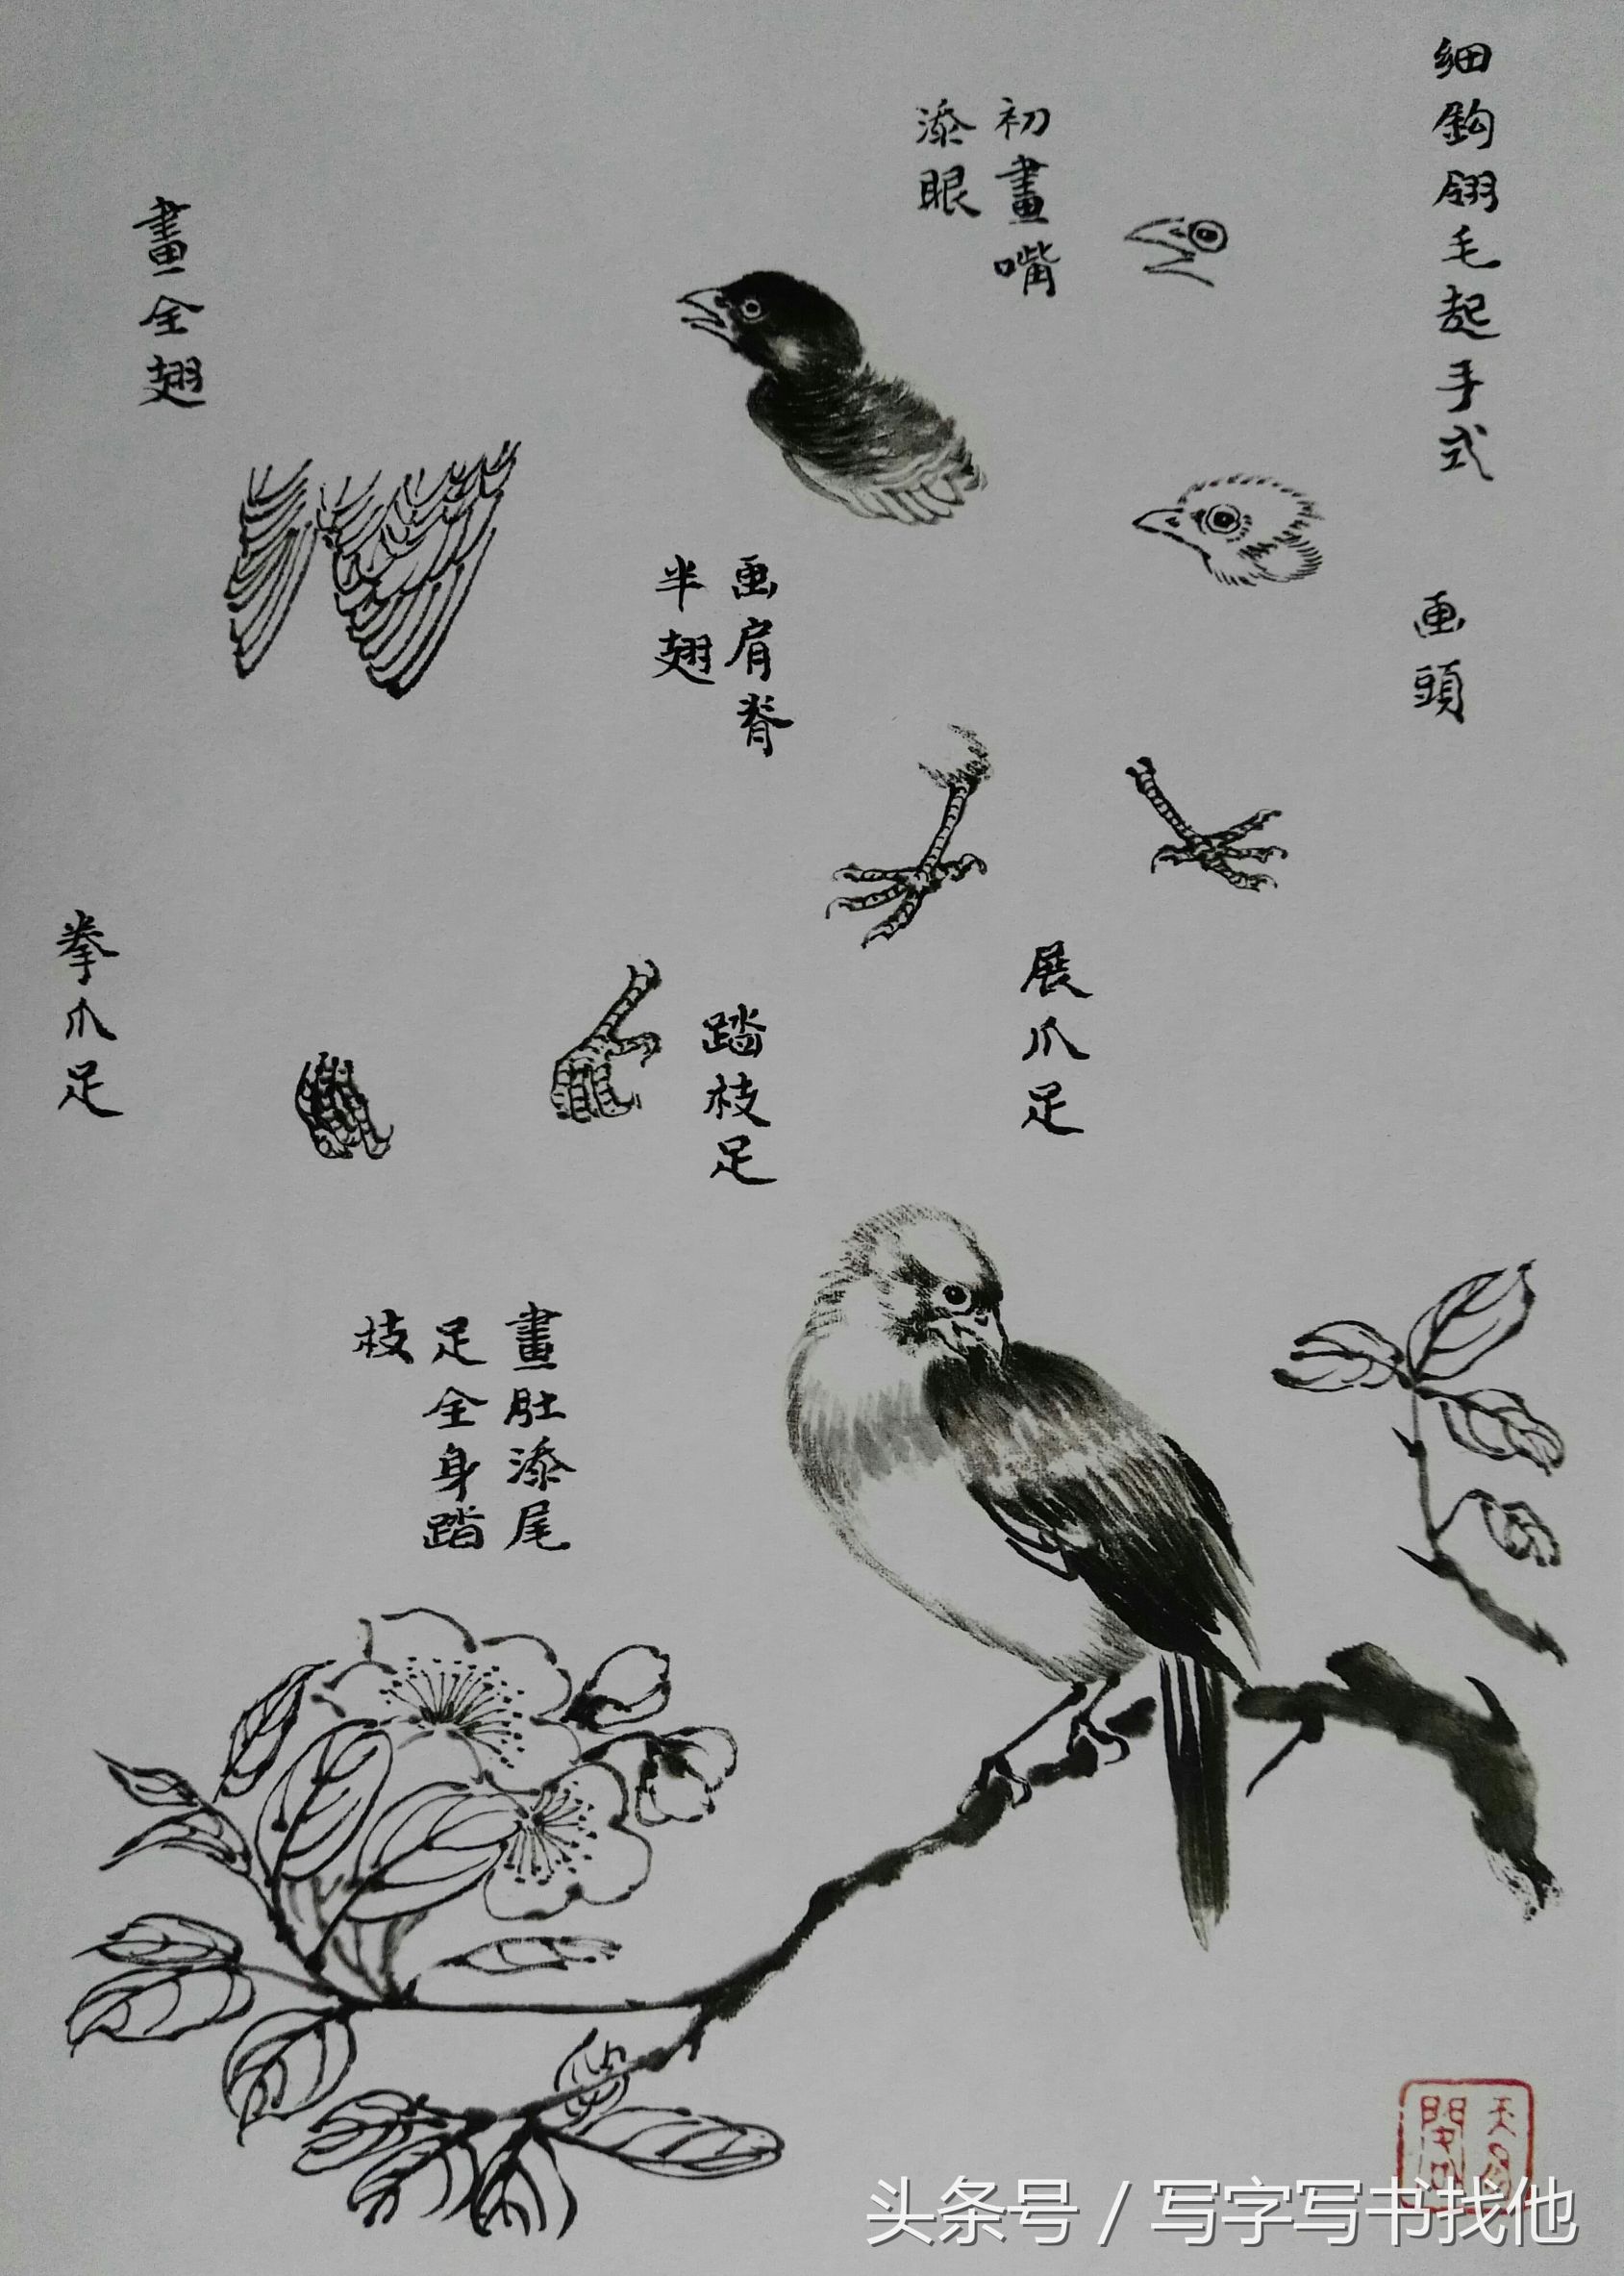 细鈎翎毛起手式
初畫嘴
添眼
画頭
画肩脊
半翅
畫全翅
展爪足
踏枝足
拳爪足
畫肚添尾
足全身踏
枝
头条号 / 写字写书找他